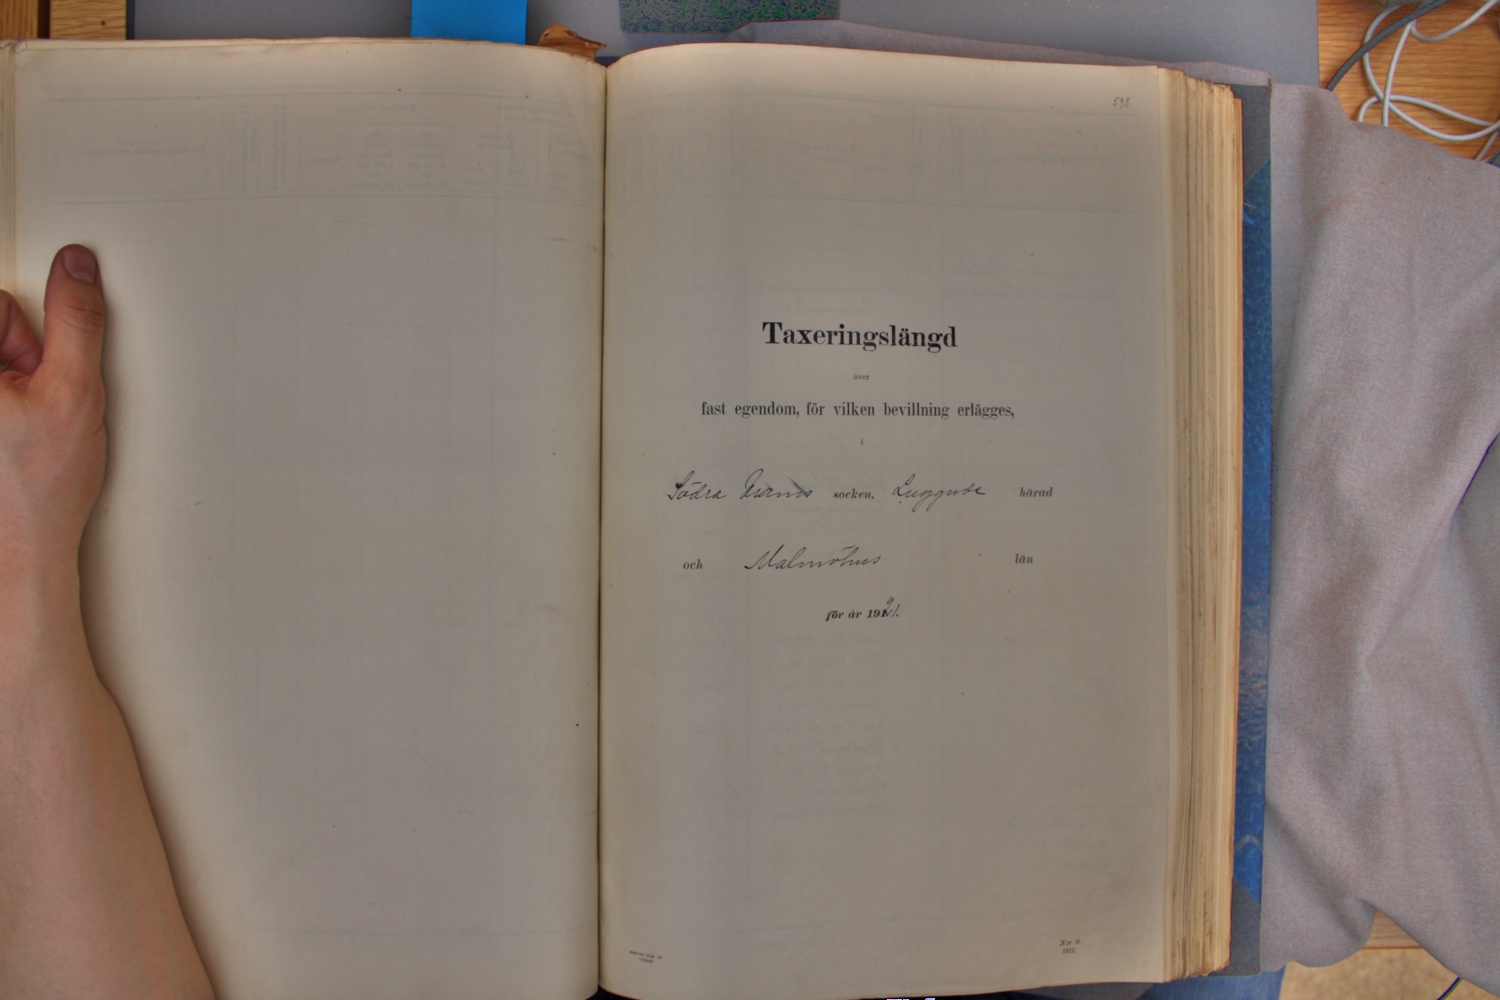 598
Taxeringslängd
över
fast egendom, för vilken bevillning erlägges,
i
Södra socken, Luggude härad
och Malmöhus län
för år 1921.
Nr 9.
1917.